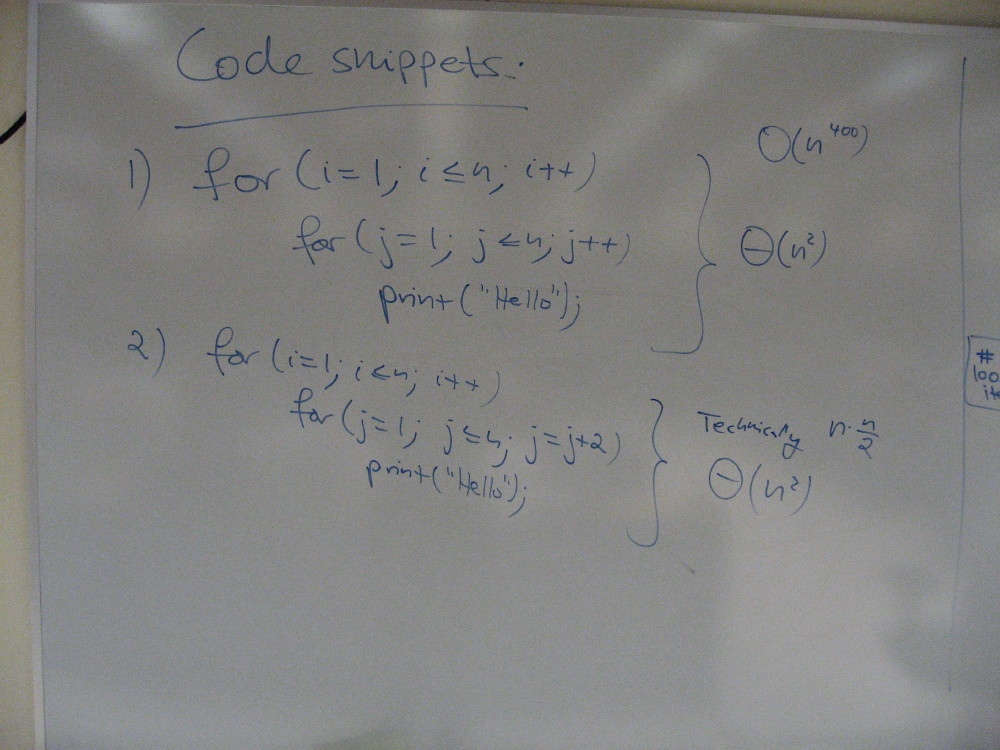 Code snippets:
1) for (i=1; i≤n; i++)
for (j=1; j≤n; j++)
print("Hello");
O(n^400)
Θ(n²)
2) for (i=1; i≤n; i++)
for (j=1; j≤n; j=j+2)
print("Hello");
Technically n·n/2
Θ(n²)
#